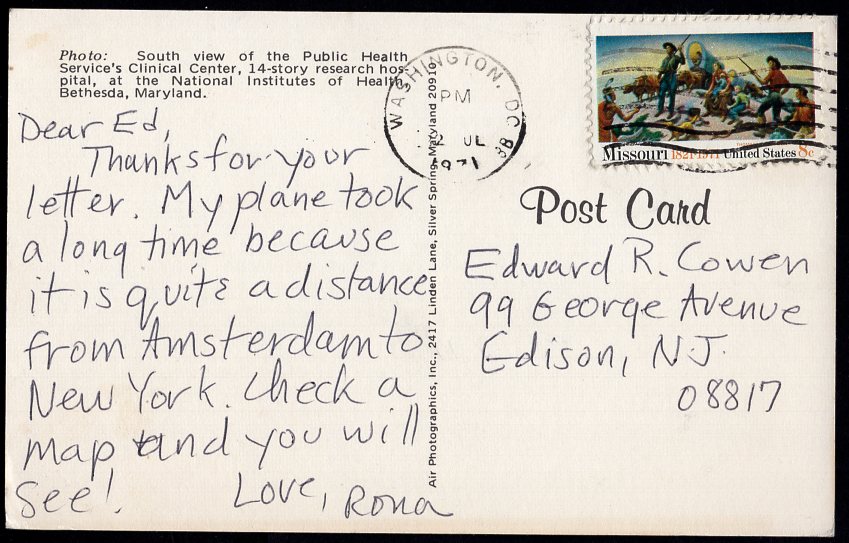 Photo: South view of the Public Health
Service's Clinical Center, 14-story research hos-
pital, at the National Institutes of Health,
Bethesda, Maryland.
Dear Ed,
Thanks for your
letter. My plane took
a long time because
it is quite a distance
from Amsterdam to
New York. Check a
map and you will
see!
Love, Rona
Air Photographics, Inc., 2417 Linden Lane, Silver Spring, Maryland 20910
WASHINGTON, DC
PM
2 JUL
1971
Missouri 1821-1971 United States 8c
Post Card
Edward R. Cowen
99 George Avenue
Edison, N.J.
08817